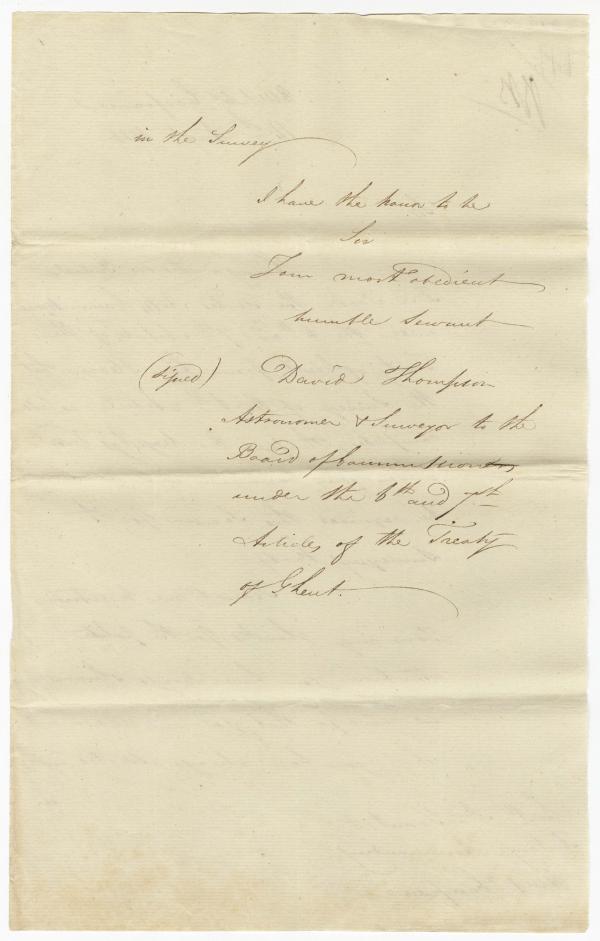 in the Survey
I have the honor to be
Sir
Your most obedient
humble servant
(signed) David Thompson
Astronomer & Surveyor to the
Board of Commissioners
under the 6th and 7th
Articles of the Treaty
of Ghent.